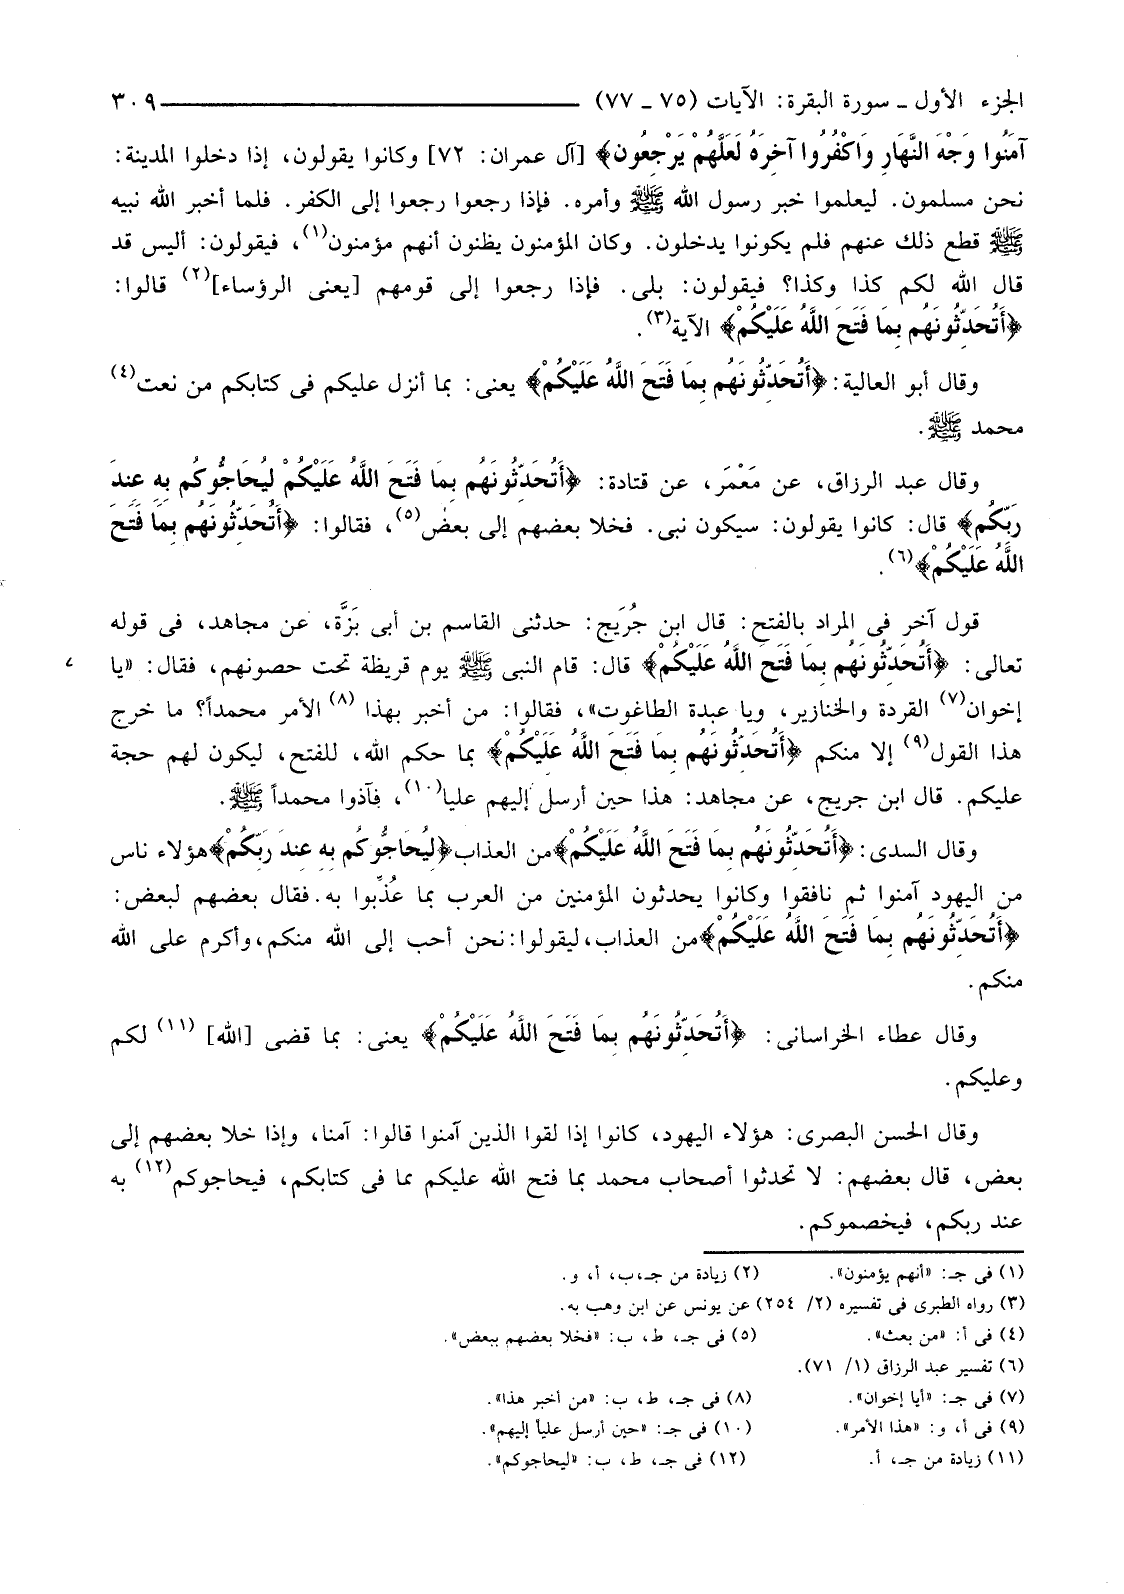 الجزء الأول ـ سورة البقرة: الآيات (٧٥ ـ ٧٧) ٣٠٩
آمَنُوا وَجْهَ النَّهَارِ وَاكْفُرُوا آخِرَهُ لَعَلَّهُمْ يَرْجِعُون﴾ [آل عمران: ٧٢] وكانوا يقولون، إذا دخلوا المدينة:
نحن مسلمون. ليعلموا خبر رسول الله ﷺ وأمره. فإذا رجعوا رجعوا إلى الكفر. فلما أخبر الله نبيه
ﷺ قطع ذلك عنهم فلم يكونوا يدخلون. وكان المؤمنون يظنون أنهم مؤمنون(١)، فيقولون: أليس قد
قال الله لكم كذا وكذا؟ فيقولون: بلى. فإذا رجعوا إلى قومهم [يعنى الرؤساء](٢) قالوا:
﴿أَتُحَدِّثُونَهُم بِمَا فَتَحَ اللَّهُ عَلَيْكُمْ﴾ الآية(٣).
وقال أبو العالية: ﴿أَتُحَدِّثُونَهُم بِمَا فَتَحَ اللَّهُ عَلَيْكُمْ﴾ يعنى: بما أنزل عليكم فى كتابكم من نعت(٤)
محمد ﷺ.
وقال عبد الرزاق، عن مَعْمَر، عن قتادة: ﴿أَتُحَدِّثُونَهُم بِمَا فَتَحَ اللَّهُ عَلَيْكُمْ لِيُحَاجُّوكُم بِهِ عِندَ
رَبِّكُم﴾ قال: كانوا يقولون: سيكون نبى. فخلا بعضهم إلى بعض(٥)، فقالوا: ﴿أَتُحَدِّثُونَهُم بِمَا فَتَحَ
اللَّهُ عَلَيْكُمْ﴾(٦).
قول آخر فى المراد بالفتح: قال ابن جُرَيج: حدثنى القاسم بن أبى بَزَّة، عن مجاهد، فى قوله
تعالى: ﴿أَتُحَدِّثُونَهُم بِمَا فَتَحَ اللَّهُ عَلَيْكُمْ﴾ قال: قام النبى ﷺ يوم قريظة تحت حصونهم، فقال: «يا
إخوان(٧) القردة والخنازير، ويا عبدة الطاغوت»، فقالوا: من أخبر بهذا (٨) الأمر محمداً؟ ما خرج
هذا القول(٩) إلا منكم ﴿أَتُحَدِّثُونَهُم بِمَا فَتَحَ اللَّهُ عَلَيْكُمْ﴾ بما حكم الله، للفتح، ليكون لهم حجة
عليكم. قال ابن جريج، عن مجاهد: هذا حين أرسل إليهم عليا(١٠)، فآذوا محمداً ﷺ.
وقال السدى: ﴿أَتُحَدِّثُونَهُم بِمَا فَتَحَ اللَّهُ عَلَيْكُمْ﴾من العذاب﴿لِيُحَاجُّوكُم بِهِ عِندَ رَبِّكُمْ﴾هؤلاء ناس
من اليهود آمنوا ثم نافقوا وكانوا يحدثون المؤمنين من العرب بما عُذِّبوا به.فقال بعضهم لبعض:
﴿أَتُحَدِّثُونَهُم بِمَا فَتَحَ اللَّهُ عَلَيْكُمْ﴾من العذاب،ليقولوا:نحن أحب إلى الله منكم،وأكرم على الله
منكم.
وقال عطاء الخراسانى: ﴿أَتُحَدِّثُونَهُم بِمَا فَتَحَ اللَّهُ عَلَيْكُمْ﴾ يعنى: بما قضى [الله] (١١) لكم
وعليكم.
وقال الحسن البصرى: هؤلاء اليهود، كانوا إذا لقوا الذين آمنوا قالوا: آمنا، وإذا خلا بعضهم إلى
بعض، قال بعضهم: لا تحدثوا أصحاب محمد بما فتح الله عليكم مما فى كتابكم، فيحاجوكم(١٢) به
عند ربكم، فيخصموكم.
(١) فى جـ: «أنهم يؤمنون». (٢) زيادة من جـ،ب، أ، و.
(٣) رواه الطبرى فى تفسيره (٢/ ٢٥٤) عن يونس عن ابن وهب به.
(٤) فى أ: «من بعث». (٥) فى جـ، ط، ب: «فخلا بعضهم ببعض».
(٦) تفسير عبد الرزاق (١/ ٧١).
(٧) فى جـ: «أيا إخوان». (٨) فى جـ، ط، ب: «من أخبر هذا».
(٩) فى أ، و: «هذا الأمر». (١٠) فى جـ: «حين أرسل علياً إليهم».
(١١) زيادة من جـ، أ. (١٢) فى جـ، ط، ب: «ليحاجوكم».